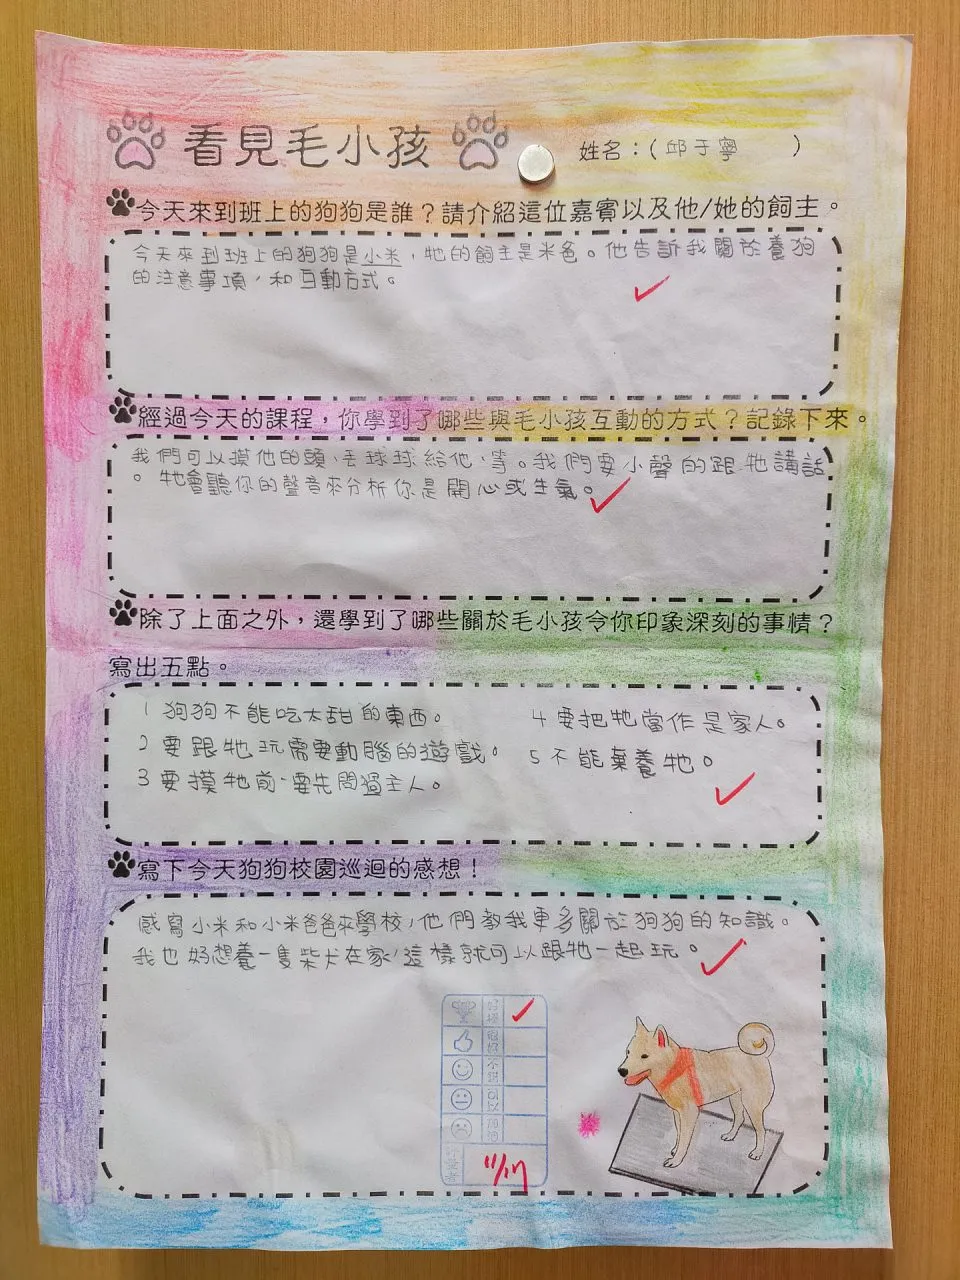 看見毛小孩
姓名：(邱于寧)
今天來到班上的狗狗是誰？請介紹這位嘉賓以及他/她的飼主。
今天來到班上的狗狗是小米，牠的飼主是米爸。他告訴我關於養狗
的注意事項，和互動方式。
經過今天的課程，你學到了哪些與毛小孩互動的方式？記錄下來。
我們可以摸他的頭、丟球球給他，等。我們要小聲的跟牠講話
。牠會聽你的聲音來分析你是開心或生氣。
除了上面之外，還學到了哪些關於毛小孩令你印象深刻的事情？
寫出五點。
1 狗狗不能吃太甜的東西。
2 要跟牠玩需要動腦的遊戲。
3 要摸牠前，要先問過主人。
4 要把牠當作是家人。
5 不能棄養牠。
寫下今天狗狗校園巡迴的感想！
小米和小米爸爸來學校，他們教我更多關於狗狗的知識。
我也好想養一隻柴犬在家，這樣就可以跟牠一起玩。
好棒
很好
不錯
可以
加油
11/17